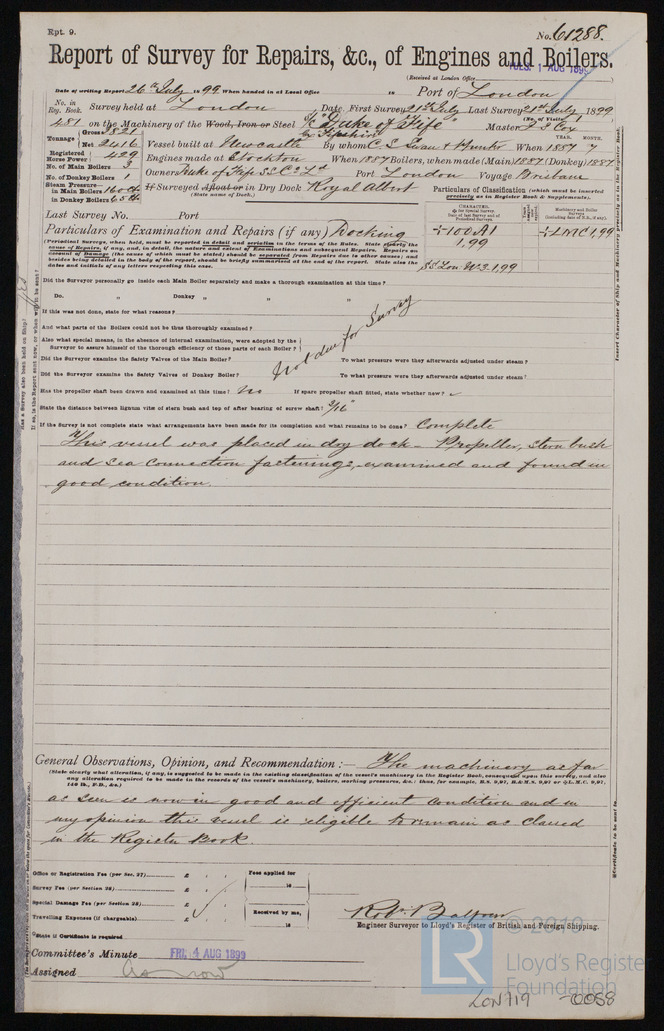 Rpt. 9.
No. 61288.
Report of Survey for Repairs, &c., of Engines and Boilers.
(Received at London Office TUES. 1 AUG 1899)
Date of writing Report 26th July 1899 When handed in at Local Office 18 Port of London
No. in Reg. Book. Survey held at London Date, First Survey 21st July Last Survey 21st July 1899
(No. of Visits 1)
481 on the Machinery of the Wood, Iron or Steel "Duke of Fife" Master J S Cox
ex Fifeshire
Tonnage Gross 3821 Net 2416
Vessel built at Newcastle By whom C. S. Swan & Hunter When 1887 7
YEAR. MONTH.
Registered Horse Power 429
Engines made at Stockton When 1887 Boilers, when made (Main) 1887 (Donkey) 1887
No. of Main Boilers 3
No. of Donkey Boilers 1
Owners Duke of Fife SS Co Ld Port London Voyage Brisbane
Steam Pressure in Main Boilers 160 lb
in Donkey Boilers 65 lb
If Surveyed Afloat or in Dry Dock Royal Albert
(State name of Dock.)
Particulars of Classification (which must be inserted precisely as in Register Book & Supplements).
Last Survey No. Port
Particulars of Examination and Repairs (if any) Docking
(Periodical Surveys, when held, must be reported in detail and seriatim in the terms of the Rules. State clearly the cause of Repairs, if any, and, in detail, the nature and extent of Examinations and subsequent Repairs. Repairs on account of Damage (the cause of which must be stated) should be separated from Repairs due to other causes; and besides being detailed in the body of the report, should be briefly summarised at the end of the report. State also the dates and initials of any letters respecting this case.
CHARACTER.
Machinery and Boiler Surveys
+100A1
1,99
+LMC 1,99
SS Lon No 3. 1,99
Did the Surveyor personally go inside each Main Boiler separately and make a thorough examination at this time?
Do. " Donkey " " "
If this was not done, state for what reasons?
And what parts of the Boilers could not be thus thoroughly examined?
Also what special means, in the absence of internal examination, were adopted by the Surveyor to assure himself of the thorough efficiency of those parts of each Boiler?
Not due for Survey
Did the Surveyor examine the Safety Valves of the Main Boiler? To what pressure were they afterwards adjusted under steam?
Did the Surveyor examine the Safety Valves of Donkey Boiler? To what pressure were they afterwards adjusted under steam?
Has the propeller shaft been drawn and examined at this time? No If spare propeller shaft fitted, state whether new?
State the distance between lignum vitæ of stern bush and top of after bearing of screw shaft? 3/16"
If the Survey is not complete state what arrangements have been made for its completion and what remains to be done? Complete
This vessel was placed in dry dock - Propeller, stern bush
and sea connection fastenings, examined and found in
good condition.
General Observations, Opinion, and Recommendation:— The machinery as far
(State clearly what alteration, if any, is suggested to be made in the existing classification of the vessel's machinery in the Register Book, consequent upon this survey, and also any alteration required to be made in the records of the vessel's machinery, boilers, working pressures, &c.: thus, for example, B.S. 9,97, B.&M.S. 9,97 or +L.M.C. 9,97, 140 lb., F.D., &c.)
as seen is now in good and efficient condition and in
my opinion this vessel is eligible to remain as classed
in the Register Book.
Office or Registration Fee (per Sec. 27) £ : :
Survey Fee (per Section 28) £ : :
Special Damage Fee (per Section 28) £ : :
Travelling Expenses (if chargeable) £ : :
Fees applied for
18
Received by me,
18
State if Certificate is required
Robt. Balfour
Engineer Surveyor to Lloyd's Register of British and Foreign Shipping.
Committee's Minute FRI. 4 AUG 1899
Assigned As now
© 2019
LR
Lloyd's Register
Foundation
LON719 - 0058